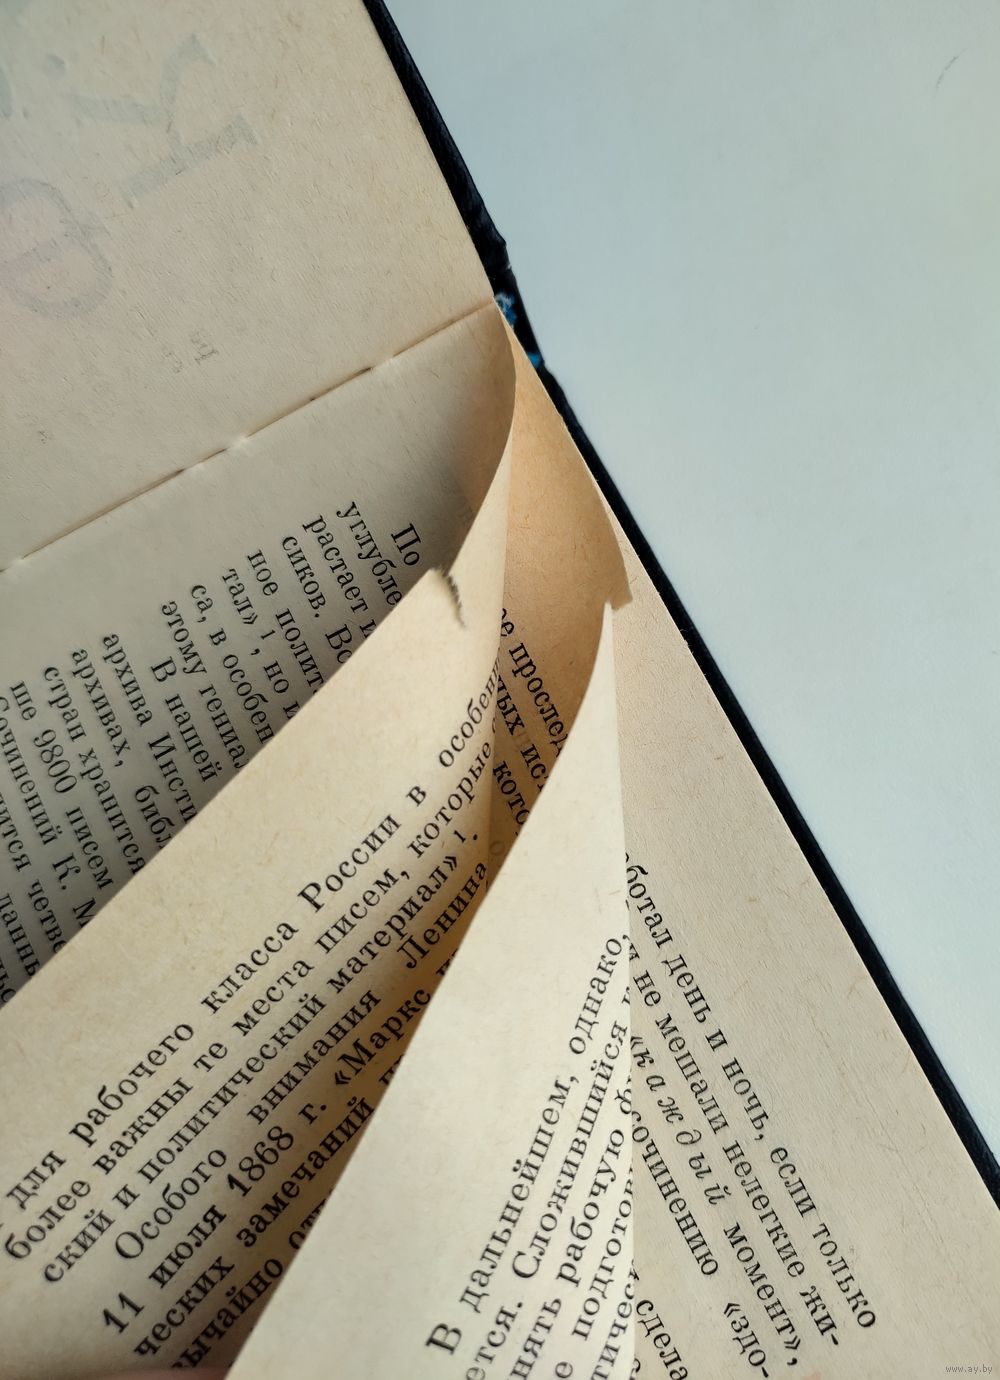 По
углубле
растает и
сиков. Вс
ное полит
тал» ¹, но и
са, в особен
этому гениал
В нашей
архива Инсти
архивах, библ
стран хранится
ше 9800 писем
Сочинений К. М
четве
для рабочего класса России в особен
более важны те места писем, которые
ский и политический материал» ¹.
Особого внимания Ленина
11 июля 1868 г. «Маркс
ческих замечаний
вычайно
прослед
ных ист
кото
В дальнейшем, однако,
ется. Сложившийся
нять рабочую
подготов
тическ
ботал день и ночь, если только
и не мешали нелегкие жи-
«каждый момент»,
сочинению «здо-
сдела
www.ay.by